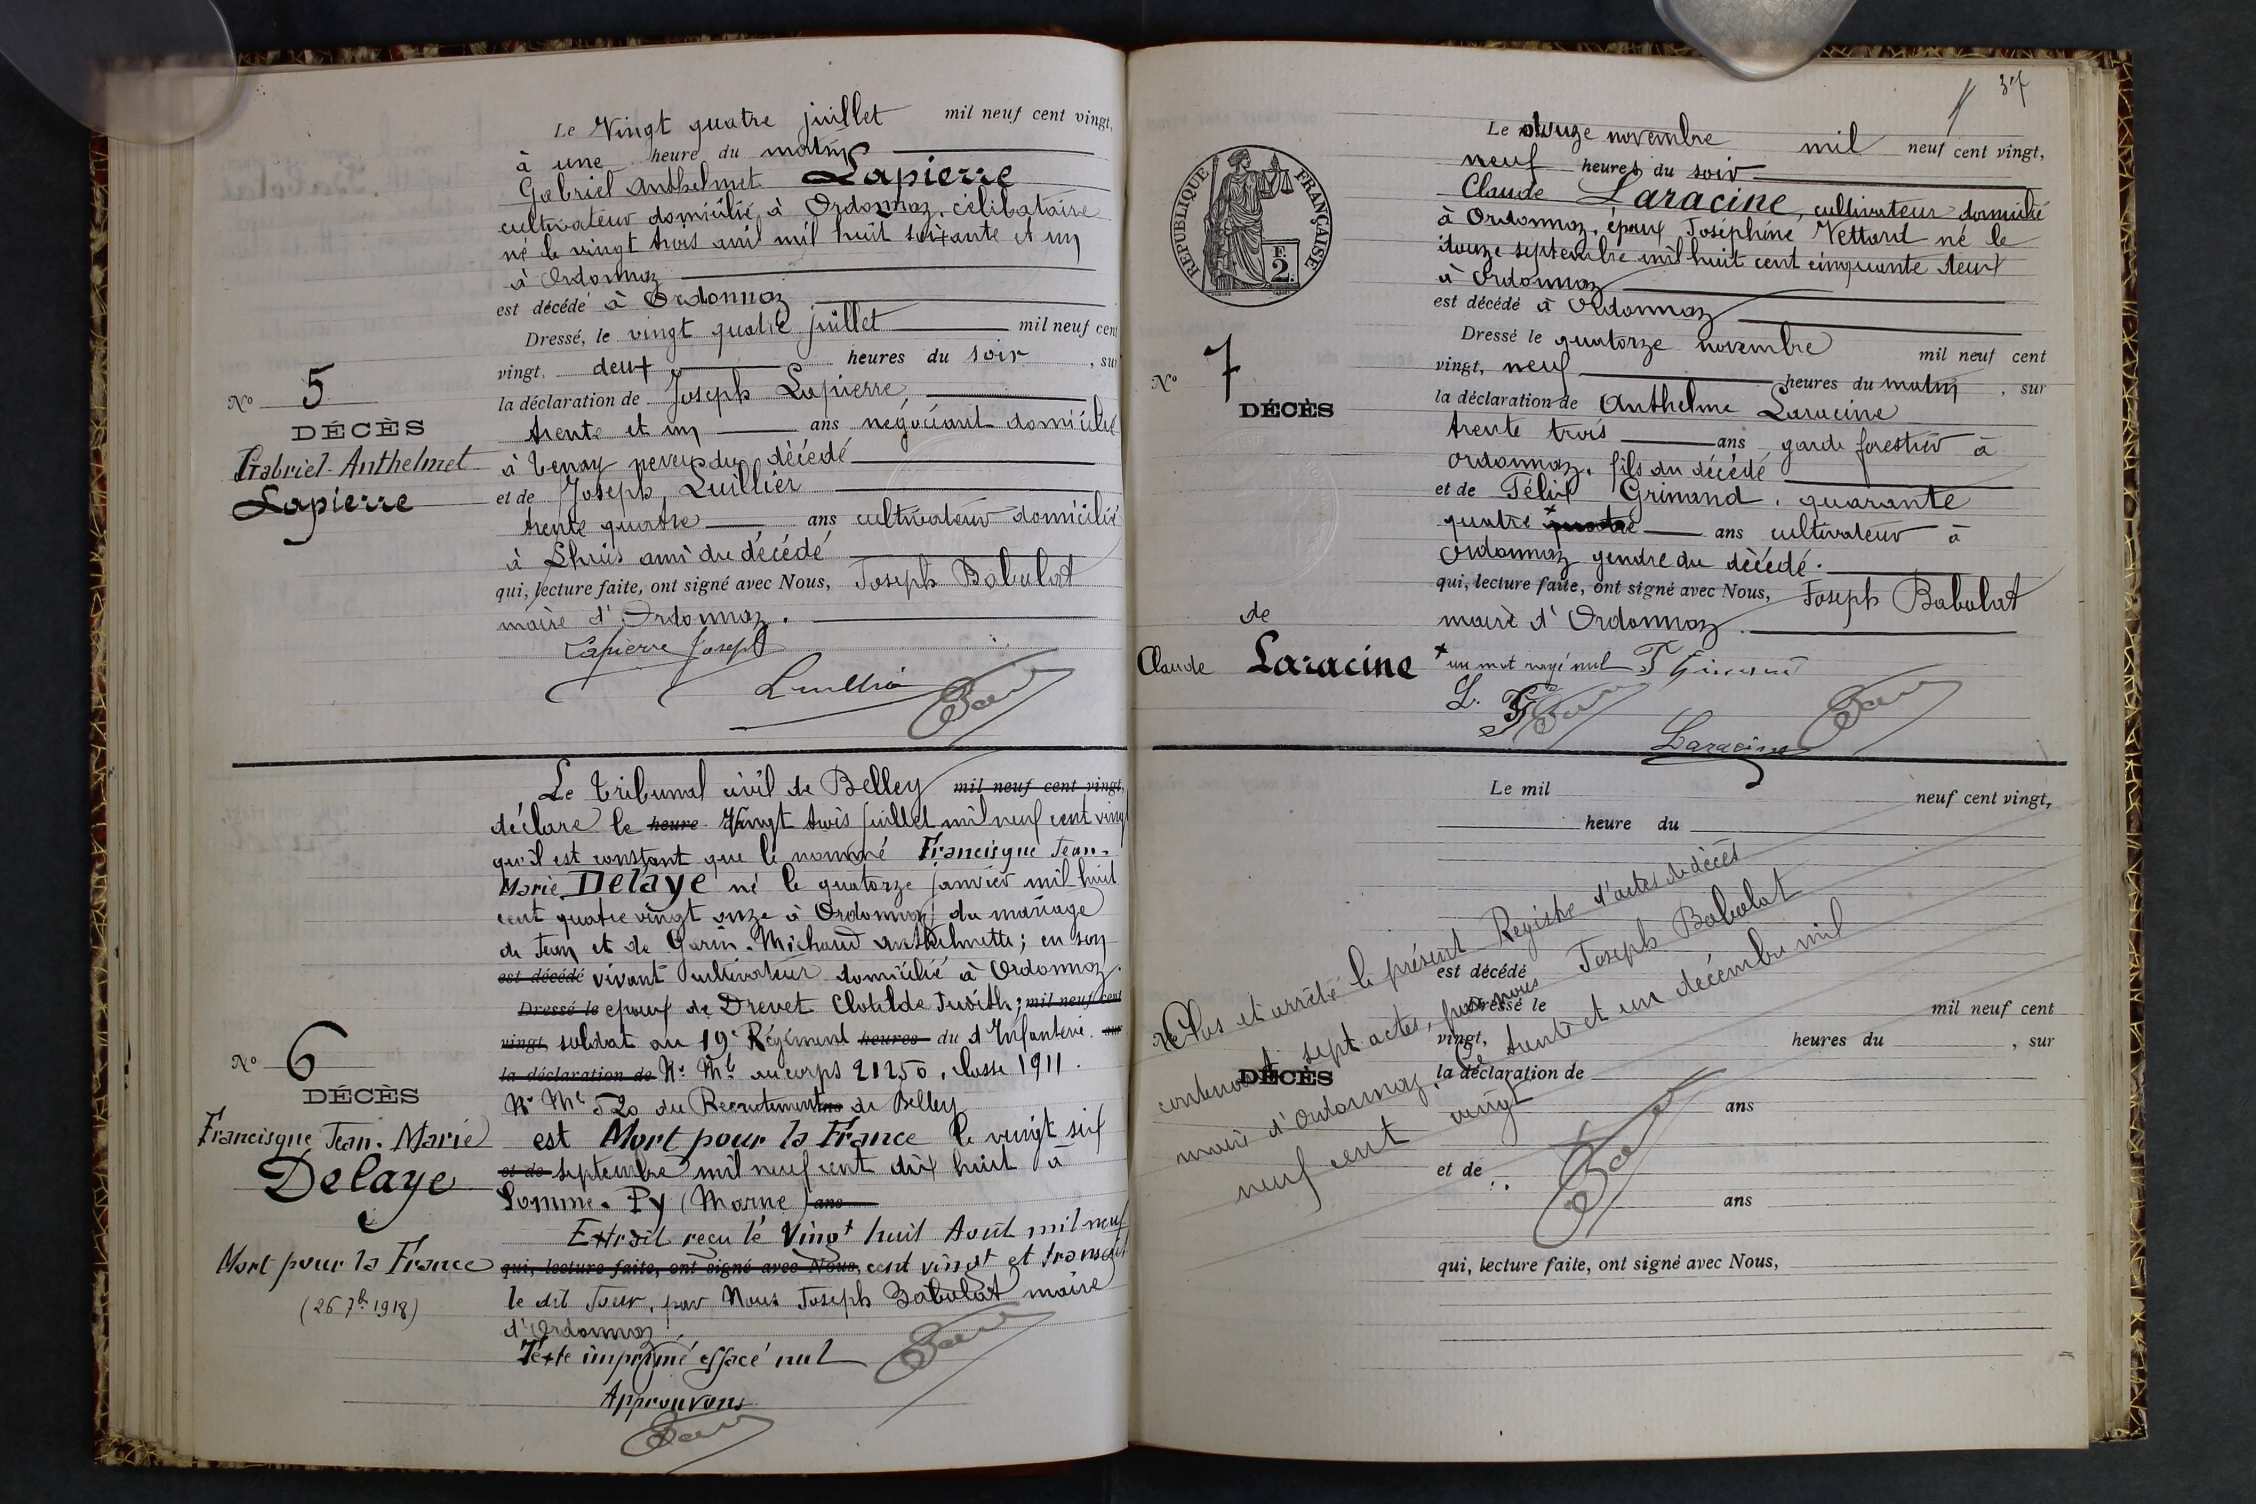 Le Vingt quatre juillet mil neuf cent vingt,
à une heure du matin
Gabriel Anthelmet Lapierre
cultivateur domicilié à Ordonnaz, célibataire
né le vingt trois avril mil huit soixante et un
à Ordonnaz
est décédé à Ordonnaz
Dressé, le vingt quatre juillet mil neuf cent
vingt, deux heures du soir, sur
la déclaration de Joseph Lapierre,
trente et un ans négociant domicilié
à Tenay neveu du décédé
et de Joseph Luillier
trente quatre ans cultivateur domicilié
à Lhuis ami du décédé
qui, lecture faite, ont signé avec Nous, Joseph Babolat
maire d'Ordonnaz.
Lapierre Joseph
Luillier
No 5
DÉCÈS
Gabriel-Anthelmet
Lapierre
Le Tribunal civil de Belley mil neuf cent vingt,
déclare le heure Vingt trois juillet mil neuf cent vingt
qu'il est constant que le nommé Francisque Jean-
Marie Delaye né le quatorze janvier mil huit
cent quatre vingt onze à Ordonnaz, du mariage
de Jean et de Garin-Michaud Anthelmette; en son
est décédé vivant cultivateur domicilié à Ordonnaz.
Dressé le époux de Drevet Clotilde Judith; mil neuf cent
vingt, soldat au 19e Régiment heures du d'Infanterie. sur
la déclaration de No Mle au corps 21250, classe 1911.
No Mle 520 du Recrutement ans de Belley
est Mort pour la France le vingt six
et de septembre mil neuf cent dix huit à
Somme-Py (Marne) ans
Extrait reçu le Vingt huit Août mil neuf
qui, lecture faite, ont signé avec Nous, cent vingt et transcrit
le dit Jour, par Nous Joseph Babolat maire
d'Ordonnaz.
Texte imprimé effacé nul
Approuvons
No 6
DÉCÈS
Francisque Jean-Marie
Delaye
Mort pour la France
(26 7b 1918)
37
Le douze novembre mil neuf cent vingt,
neuf heures du soir
Claude Laracine, cultivateur domicilié
à Ordonnaz, époux Joséphine Vettard né le
douze septembre mil huit cent cinquante deux
à Ordonnaz
est décédé à Ordonnaz
Dressé le quatorze novembre mil neuf cent
vingt, neuf heures du matin, sur
la déclaration de Anthelme Laracine
trente trois ans garde forestier à
Ordonnaz, fils du décédé
et de Félix Grimand, quarante
quatre x quatre ans cultivateur à
Ordonnaz gendre du décédé.
qui, lecture faite, ont signé avec Nous, Joseph Babolat
maire d'Ordonnaz.
x un mot rayé nul
L. F.
Laracine
RÉPUBLIQUE FRANÇAISE
F.
2
No 7
DÉCÈS
de
Claude Laracine
Le mil neuf cent vingt,
heure du
est décédé
Dressé le mil neuf cent
vingt, heures du , sur
la déclaration de
ans
et de
ans
qui, lecture faite, ont signé avec Nous,
No
DÉCÈS
Clos et arrêté le présent Registre d'actes de décès
contenant sept actes, par nous Joseph Babolat
maire d'Ordonnaz, ce trente et un décembre mil
neuf cent vingt